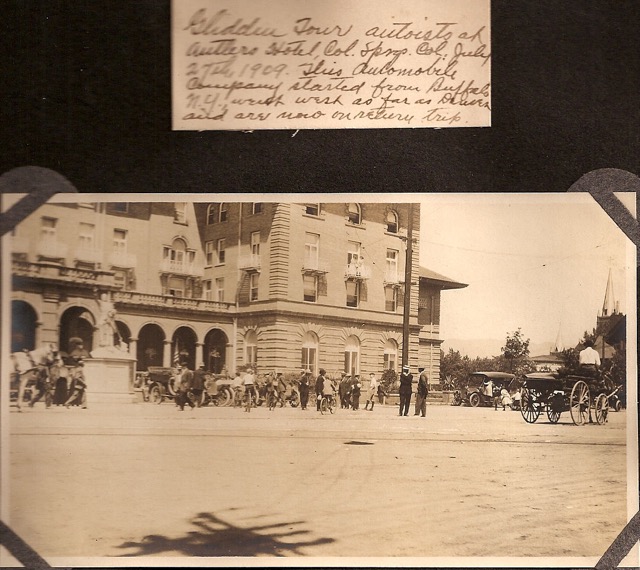 Glidden Tour autoists at
Antlers Hotel, Col. Spgs. Col., July
27th, 1909. This Automobile
Company started from Buffalo
N.Y., went west as far as Denver
and are now on return trip.